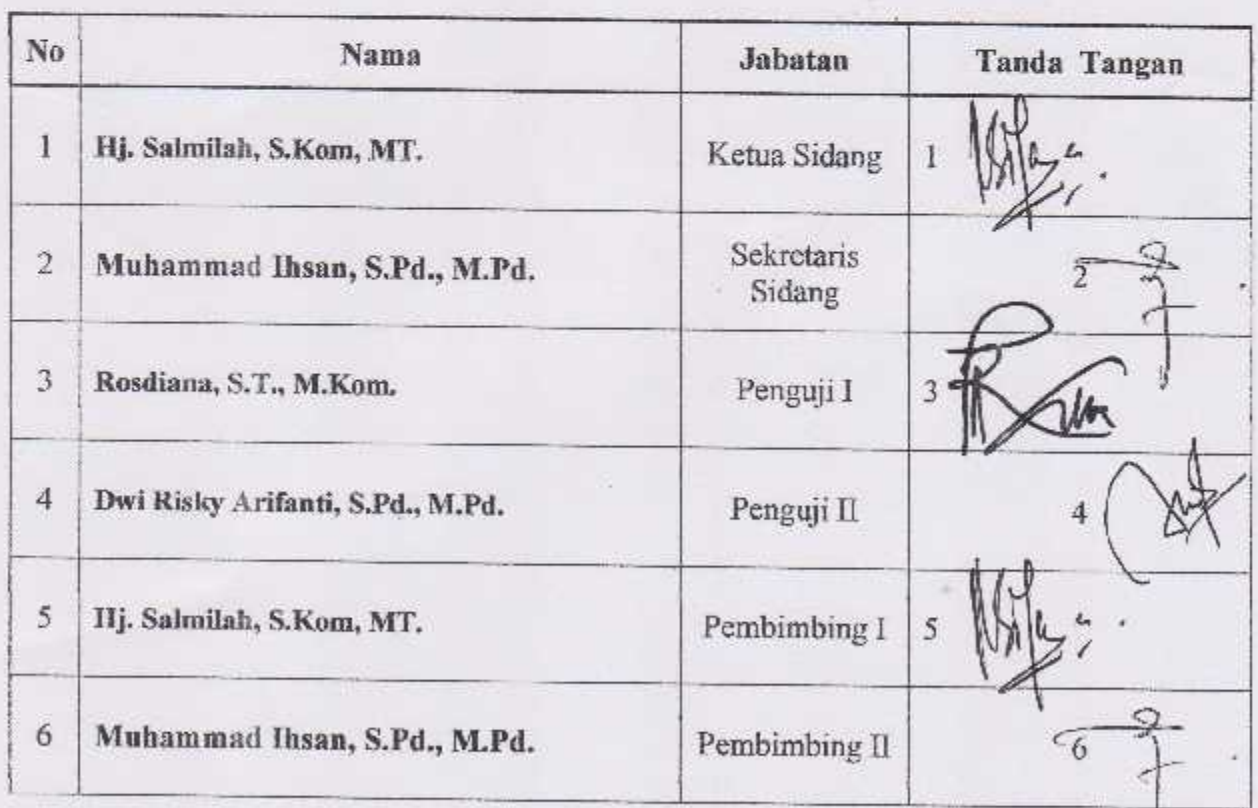 No Nama Jabatan Tanda Tangan
1 Hj. Salmilah, S.Kom, MT. Ketua Sidang 1
2 Muhammad Ihsan, S.Pd., M.Pd. Sekretaris Sidang 2
3 Rosdiana, S.T., M.Kom. Penguji I 3
4 Dwi Risky Arifanti, S.Pd., M.Pd. Penguji II 4
5 Hj. Salmilah, S.Kom, MT. Pembimbing I 5
6 Muhammad Ihsan, S.Pd., M.Pd. Pembimbing II 6